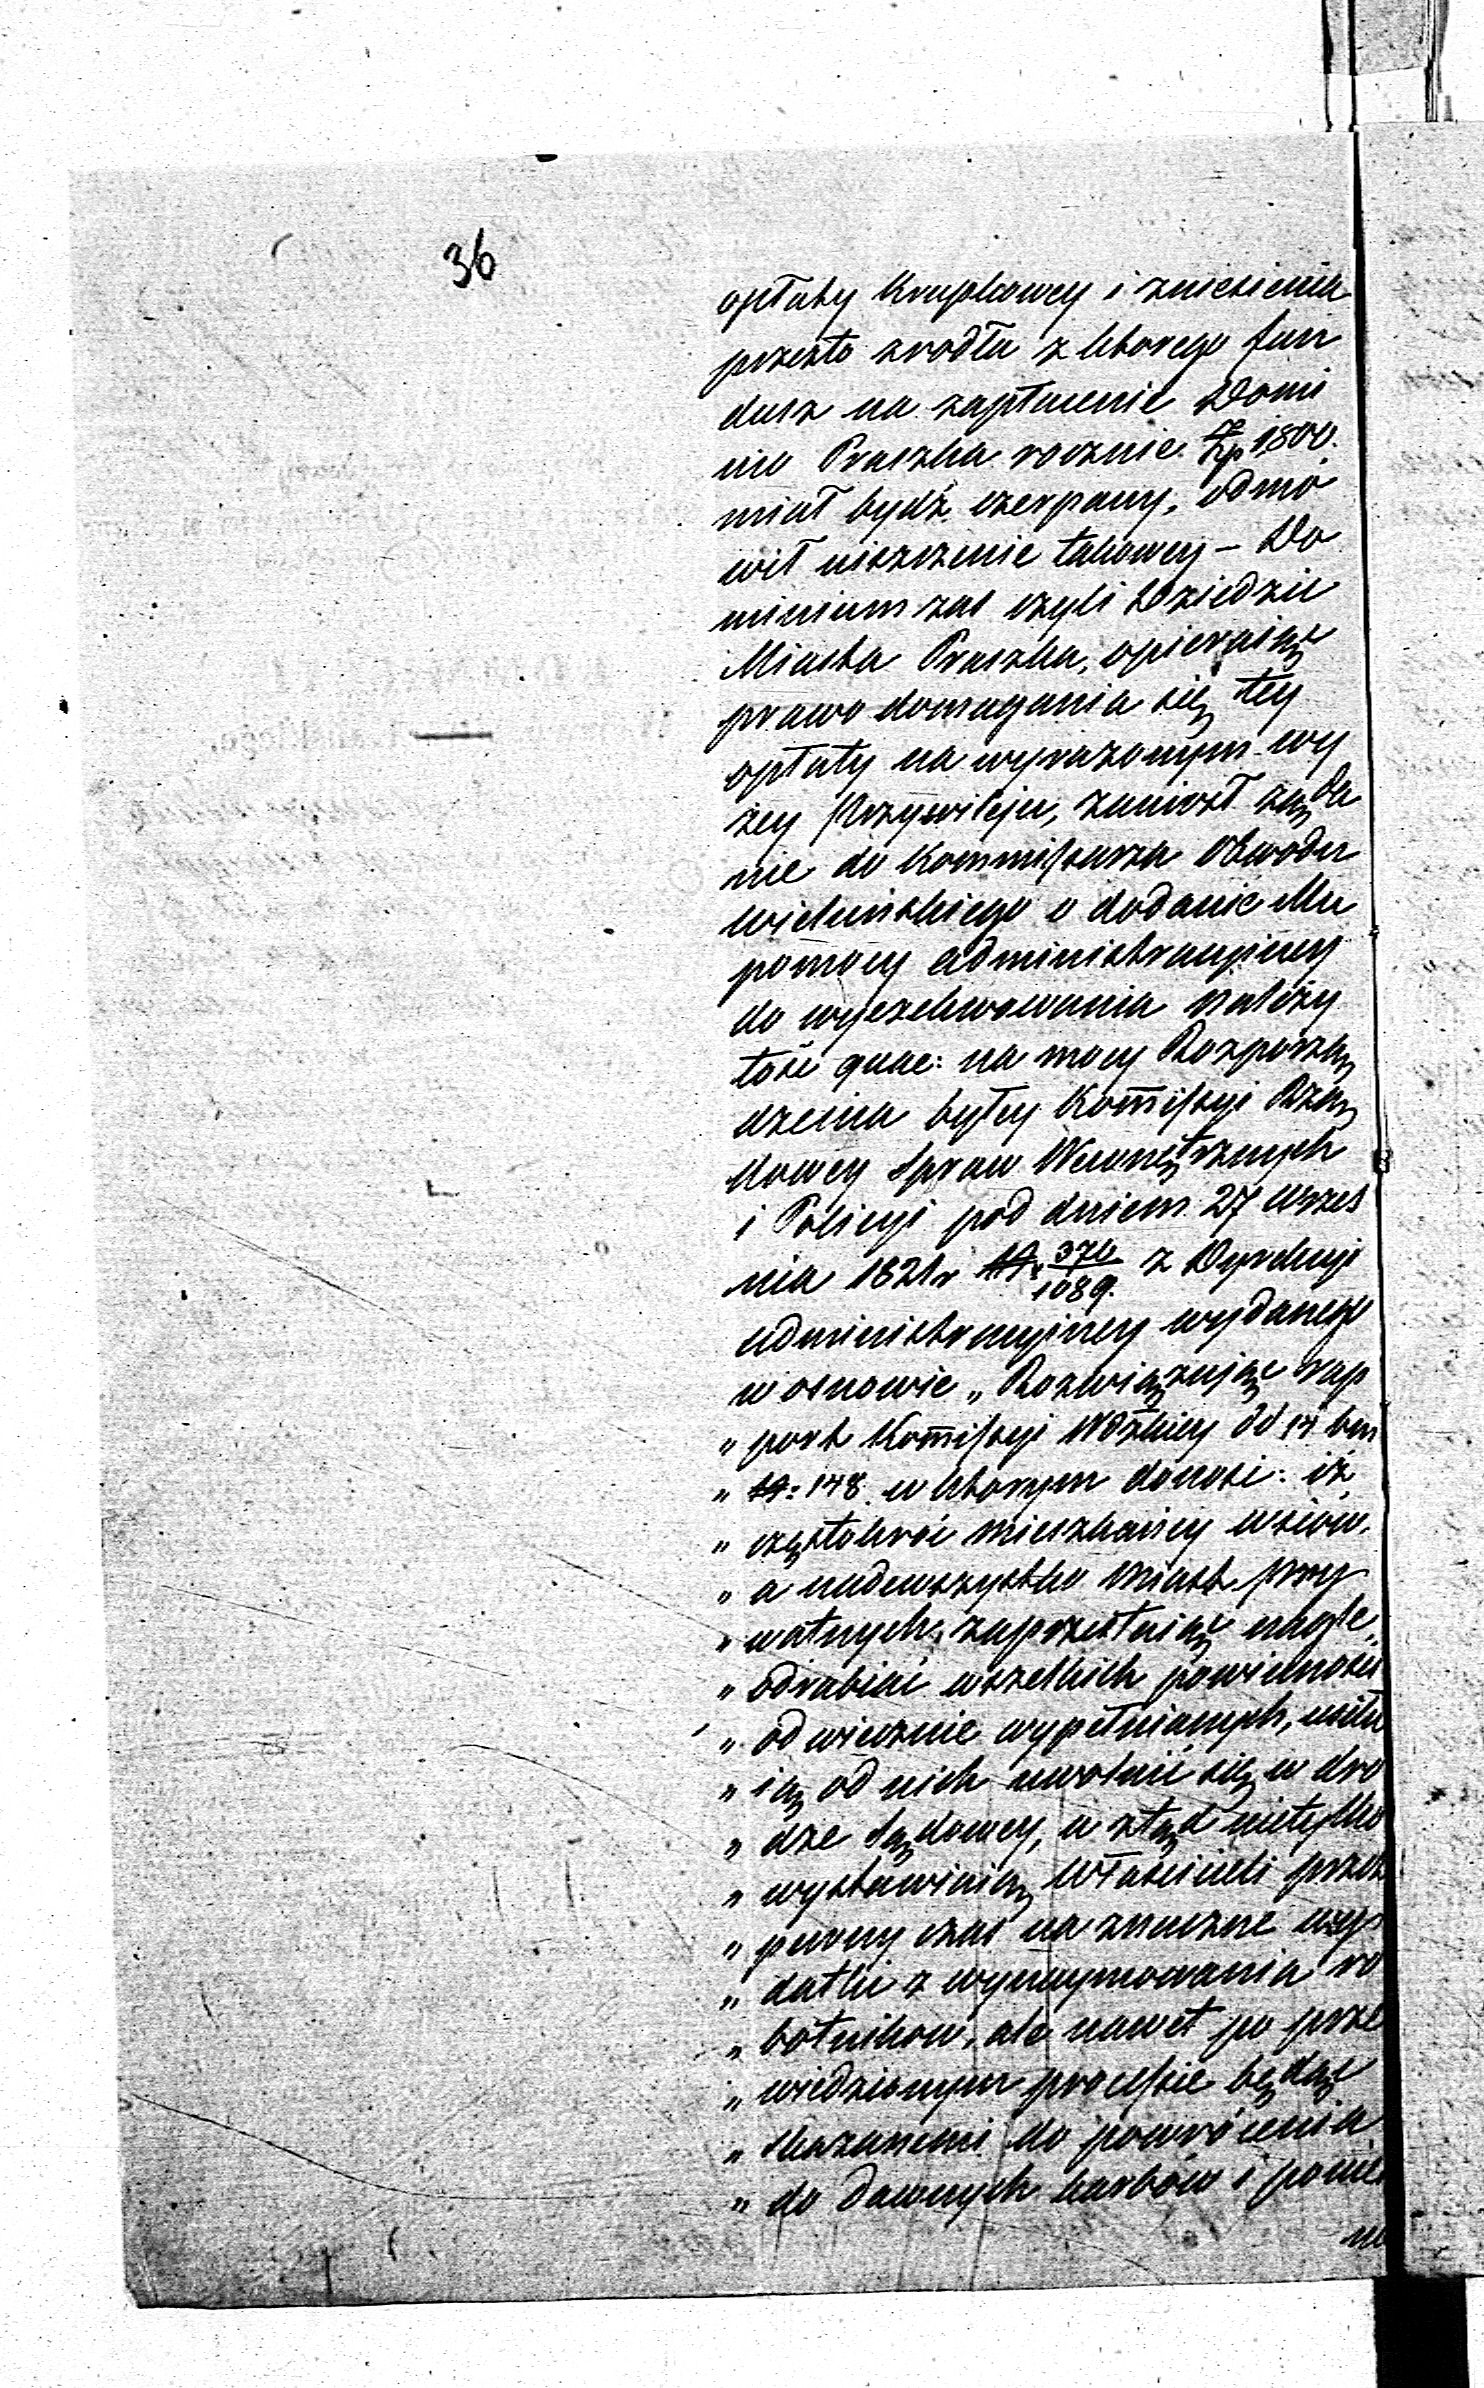 36
opłaty Krupkowey i zniesienia
przezto zrodła z ktorego fun
dusz na zapłacenie Domi
nio Praszka rocznie Złp 1800.
miał bydź czerpany, odmó
wił uiszczenie takowey – Do
minium zas czyli Dziedzic
Miasta Praszka, opieraiąc
prawo domagania się tey
opłaty na wyrazonym wy
żey Przywileju, zaniosł żąda
nie do Kommissarza Obwodu
Wieluńskiego o dodanie Mu
pomocy administracyiney
do wyexekwowania należy
tośi quae: na mocy Rozporzą
dzenia byłey Kommissyi Rzą
dowey Spraw Wewnętrznych
i Policyi pod dniem 27 Wrzes
nia 1821r N: 376/1089. z Dyrekcyi
administracyiney wydanego
w osnowie „Rozwiązując rap
„ port Kommissyi Wdzkiey dd 14 bm
„ N: 148. w ktorym donosi: iż
„ częstokroć mieszkańcy wsiów,
„ a nadewszystko miast pry
„ watnych, zaprzestaiąc nagle
„ odrabiać wszelkich powinności
„ odwiecznie wypełnianych, usiłu
„ ią od nich uwolnić się w dro
„ dze Sądowey, a ztąd nietylko
„ wystawiaią Właścicieli przez
„ pewny czas na znaczne wy
„ datki z wynaymowania ro
„ botnikow, ale nawet po prze
„ wiedzionym processie będąc
„ skazanemi do powrócenia
„ do dawnych karbów i powin
no